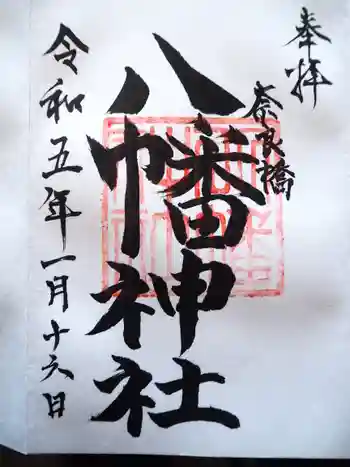 奉拝
奈良橋
八幡神社
令和五年一月十六日